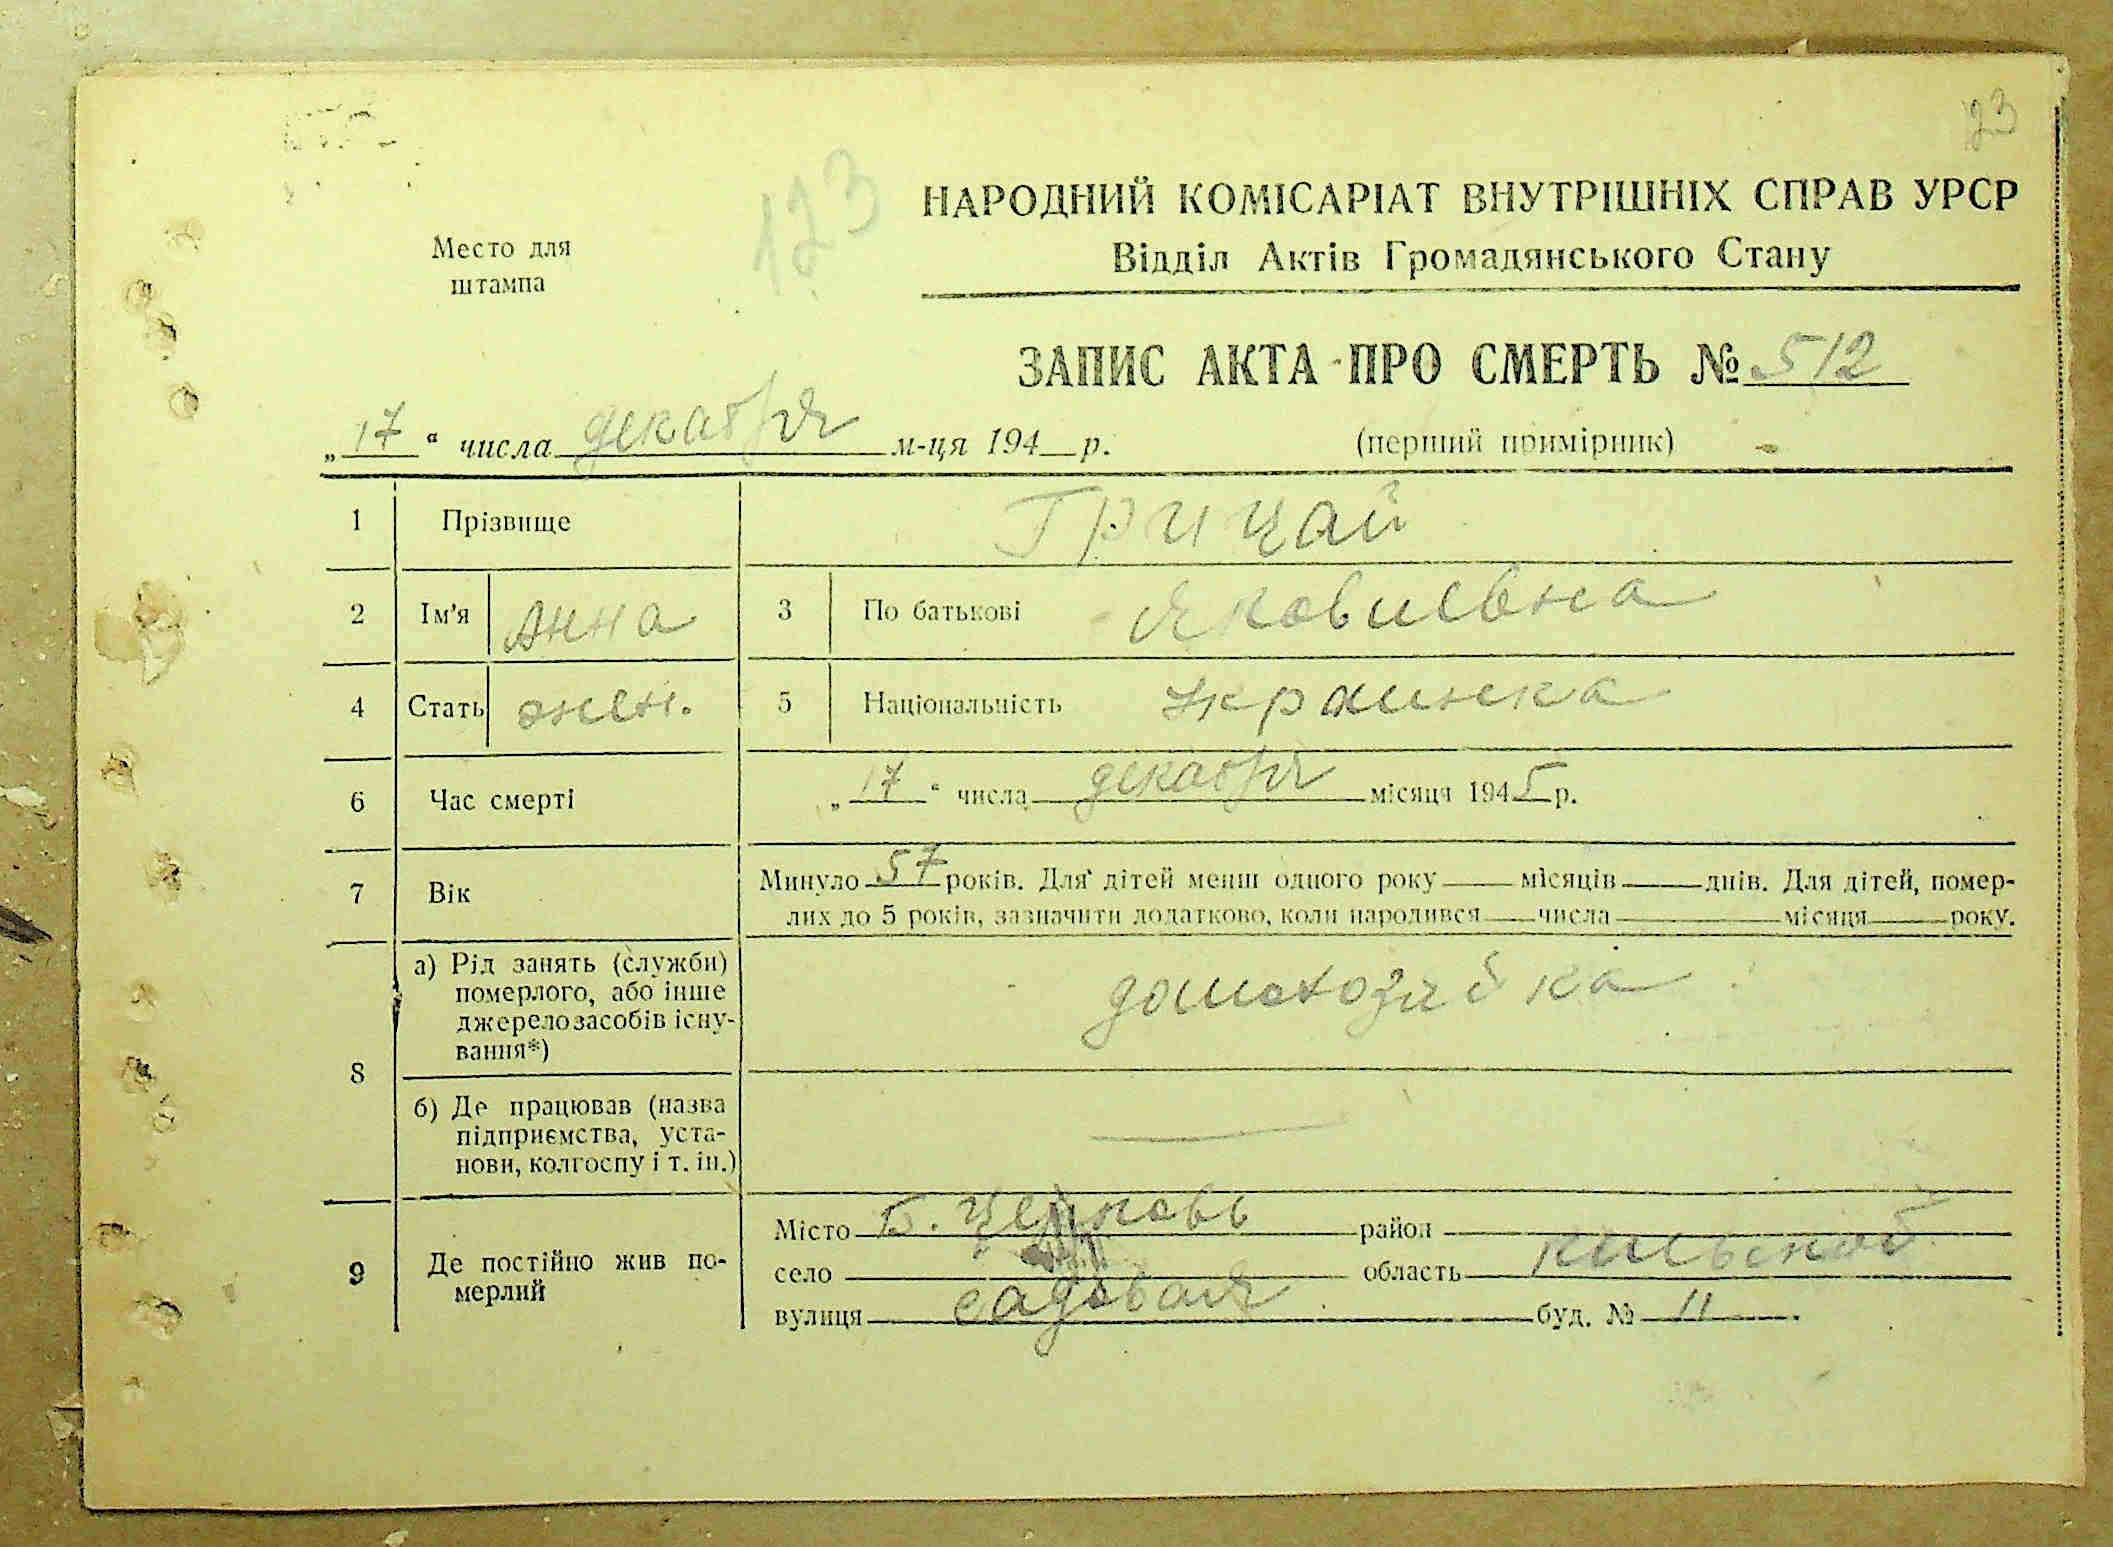 123
123
НАРОДНИЙ КОМІСАРІАТ ВНУТРІШНІХ СПРАВ УРСР
Відділ Актів Громадянського Стану
Место для
штампа
ЗАПИС АКТА ПРО СМЕРТЬ № 512
„17“ числа декабря м-ця 194 р.
(перший примірник)
1 Прізвище Грицай
2 Ім'я Анна 3 По батькові Яковлевна
4 Стать жен. 5 Національність украинка
6 Час смерті „17“ числа декабря місяця 1945 р.
7 Вік Минуло 57 років. Для дітей менш одного року місяців днів. Для дітей, помер-
лих до 5 років, зазначити додатково, коли народився числа місяця року.
8 а) Рід занять (служби)
померлого, або інше
джерело засобів існу-
вання*)
домохозяйка
б) Де працював (назва
підприємства, уста-
нови, колгоспу і т. ін.)
9 Де постійно жив по-
мерлий
Місто Б. Церковь район
село область киевской
вулиця садовая буд. № 11